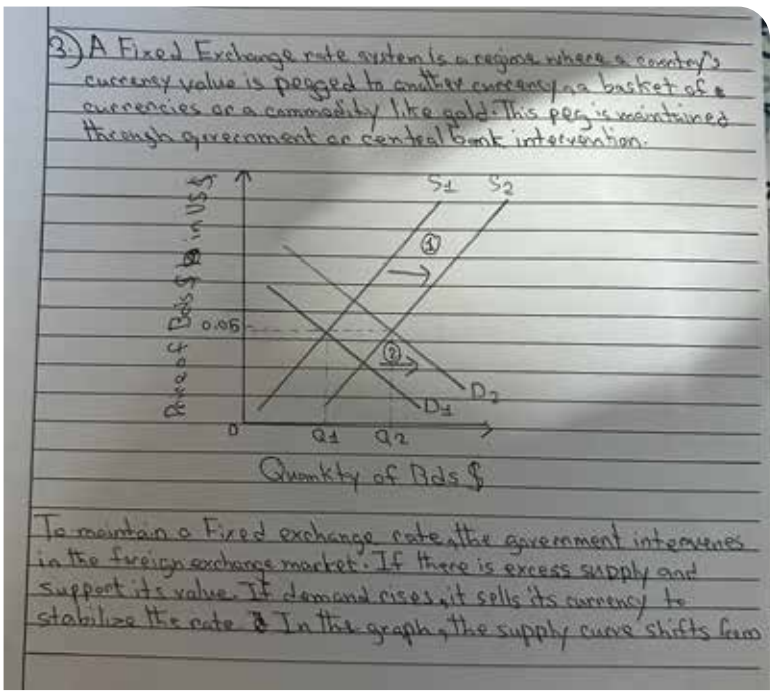 3.) A Fixed Exchange rate system is a regime where a country's
currency value is pegged to another currency, a basket of
currencies or a commodity like gold. This peg is maintained
through government or central bank intervention.
S1 S2
Price of Bds $ in US $
①
0.05
②
D2
D1
0 Q1 Q2
Quantity of Bds $
To maintain a Fixed exchange rate, the government intervenes
in the foreign exchange market. If there is excess supply and
support its value. If demand rises, it sells its currency to
stabilize the rate In the graph, the supply curve shifts from